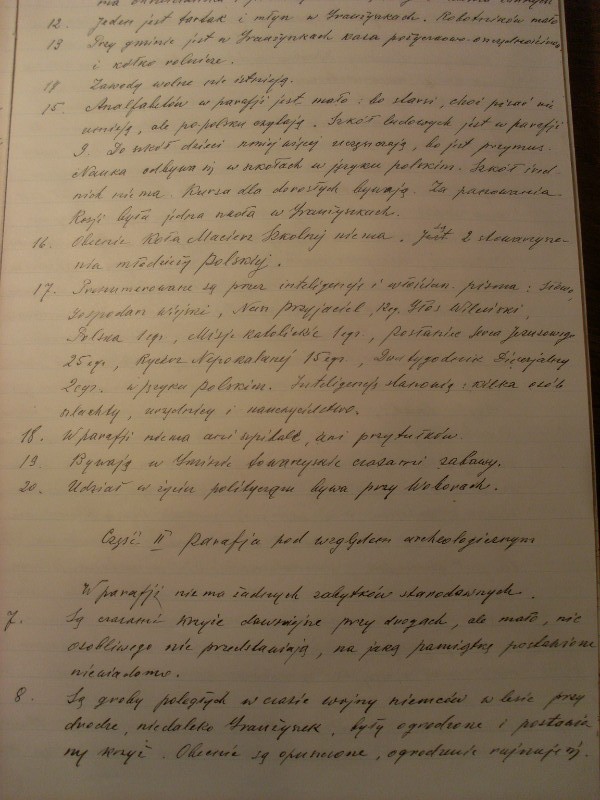 12. Jeden jest tartak i młyn w Graużyszkach. Robotników mało
13 Przy gminie jest w Graużyszkach kasa pożyczkowo-oszczędnościowa
i kółko rolnicze.
18 Zawody wolne nie istnieją.
15. Analfabetów w parafji jest mało: bo starsi, choć pisać nie
umieją, ale po-polsku czytają. Szkół ludowych jest w parafji
9. Do szkół dzieci mniej więcej uczęszczają, bo jest przymus.
Nauka odbywa się w szkołach w języku polskim. Szkół in-
nych niema. Kursa dla dorosłych bywają. Za panowania
Rosji była jedna szkoła w Graużyszkach.
16. Obecnie Koła Macierz Szkolnej niema. Są 2 stowarzysze-
nia młodzieży Polskiej.
17. Prenumerowane są przez inteligencję i włościan. pisma:
Gospodarz wiejski, Nasz Przyjaciel, Głos Wileński,
Polska 1 egz., Misje Katolickie 1 egz., Posłaniec Serca Jezusowego
25 egz., Rycerz Niepokalanej 15 egz., Dwutygodnik Diecezjalny
2 egz. w języku polskim. Inteligencję stanowią: kilka osób
szlachty, urzędnicy i nauczycielstwo.
18. W parafji niema ani szpitala, ani przytułków.
19. Bywają w Gminie towarzyskie czasami zabawy.
20. Udział w życiu politycznem bywa przy Wyborach.
Część II Parafja pod względem archeologicznym
W parafji niema żadnych zabytków starodawnych.
7. Są czasami krzyże dawniejsze przy drogach, ale mało, nic
osobliwego nie przedstawiają, na jaką pamiątkę postawione
niewiadomo.
8. Są groby poległych w czasie wojny niemców w lesie przy
drodze, niedaleko Graużyszek, były ogrodzone i postawio-
ny krzyż. Obecnie są opuszczone, ogrodzenie rujnuje się.